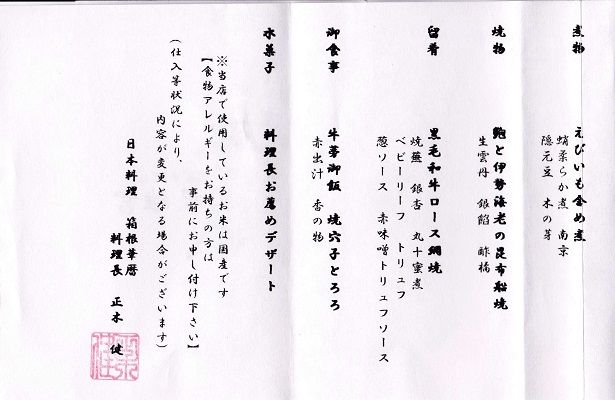 煮物　えびいも含め煮
蛸柔らか煮　南京
隠元豆　木の芽
焼物　鮑と伊勢海老の昆布船焼
生雲丹　銀餡　酢橘
留肴　黒毛和牛ロース網焼
焼葱　銀杏　丸十蜜煮
ベビーリーフ　トリュフ
葱ソース　赤味噌トリュフソース
御食事　牛蒡御飯　焼穴子とろろ
赤出汁　香の物
水菓子　料理長お薦めデザート
※当店で使用しているお米は国産です
【食物アレルギーをお持ちの方は
事前にお申し付け下さい】
（仕入等状況により、
内容が変更となる場合がございます）
日本料理　箱根華暦
料理長　正木　健